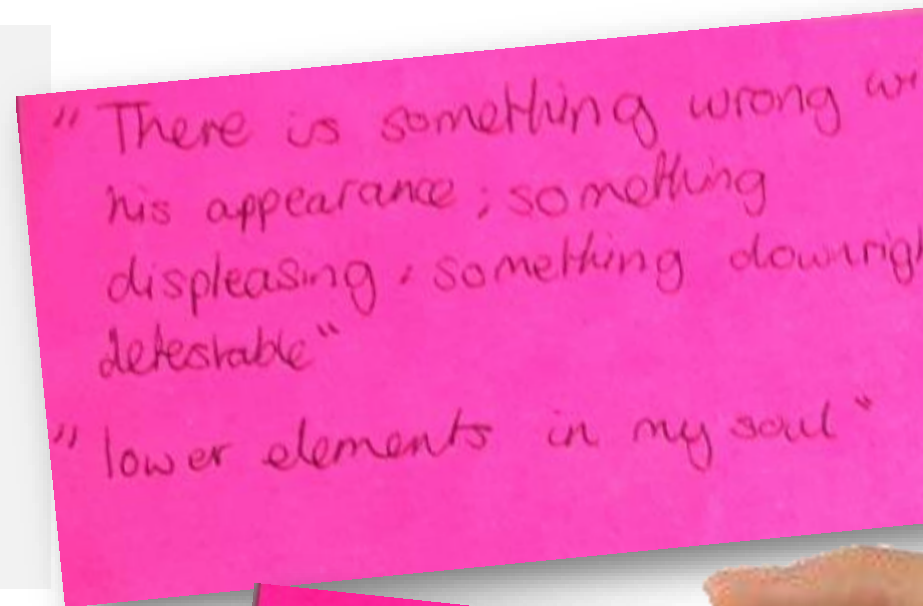 " There is something wrong wi
his appearance ; something
displeasing ; something downrigh
detestable "
" lower elements in my soul "